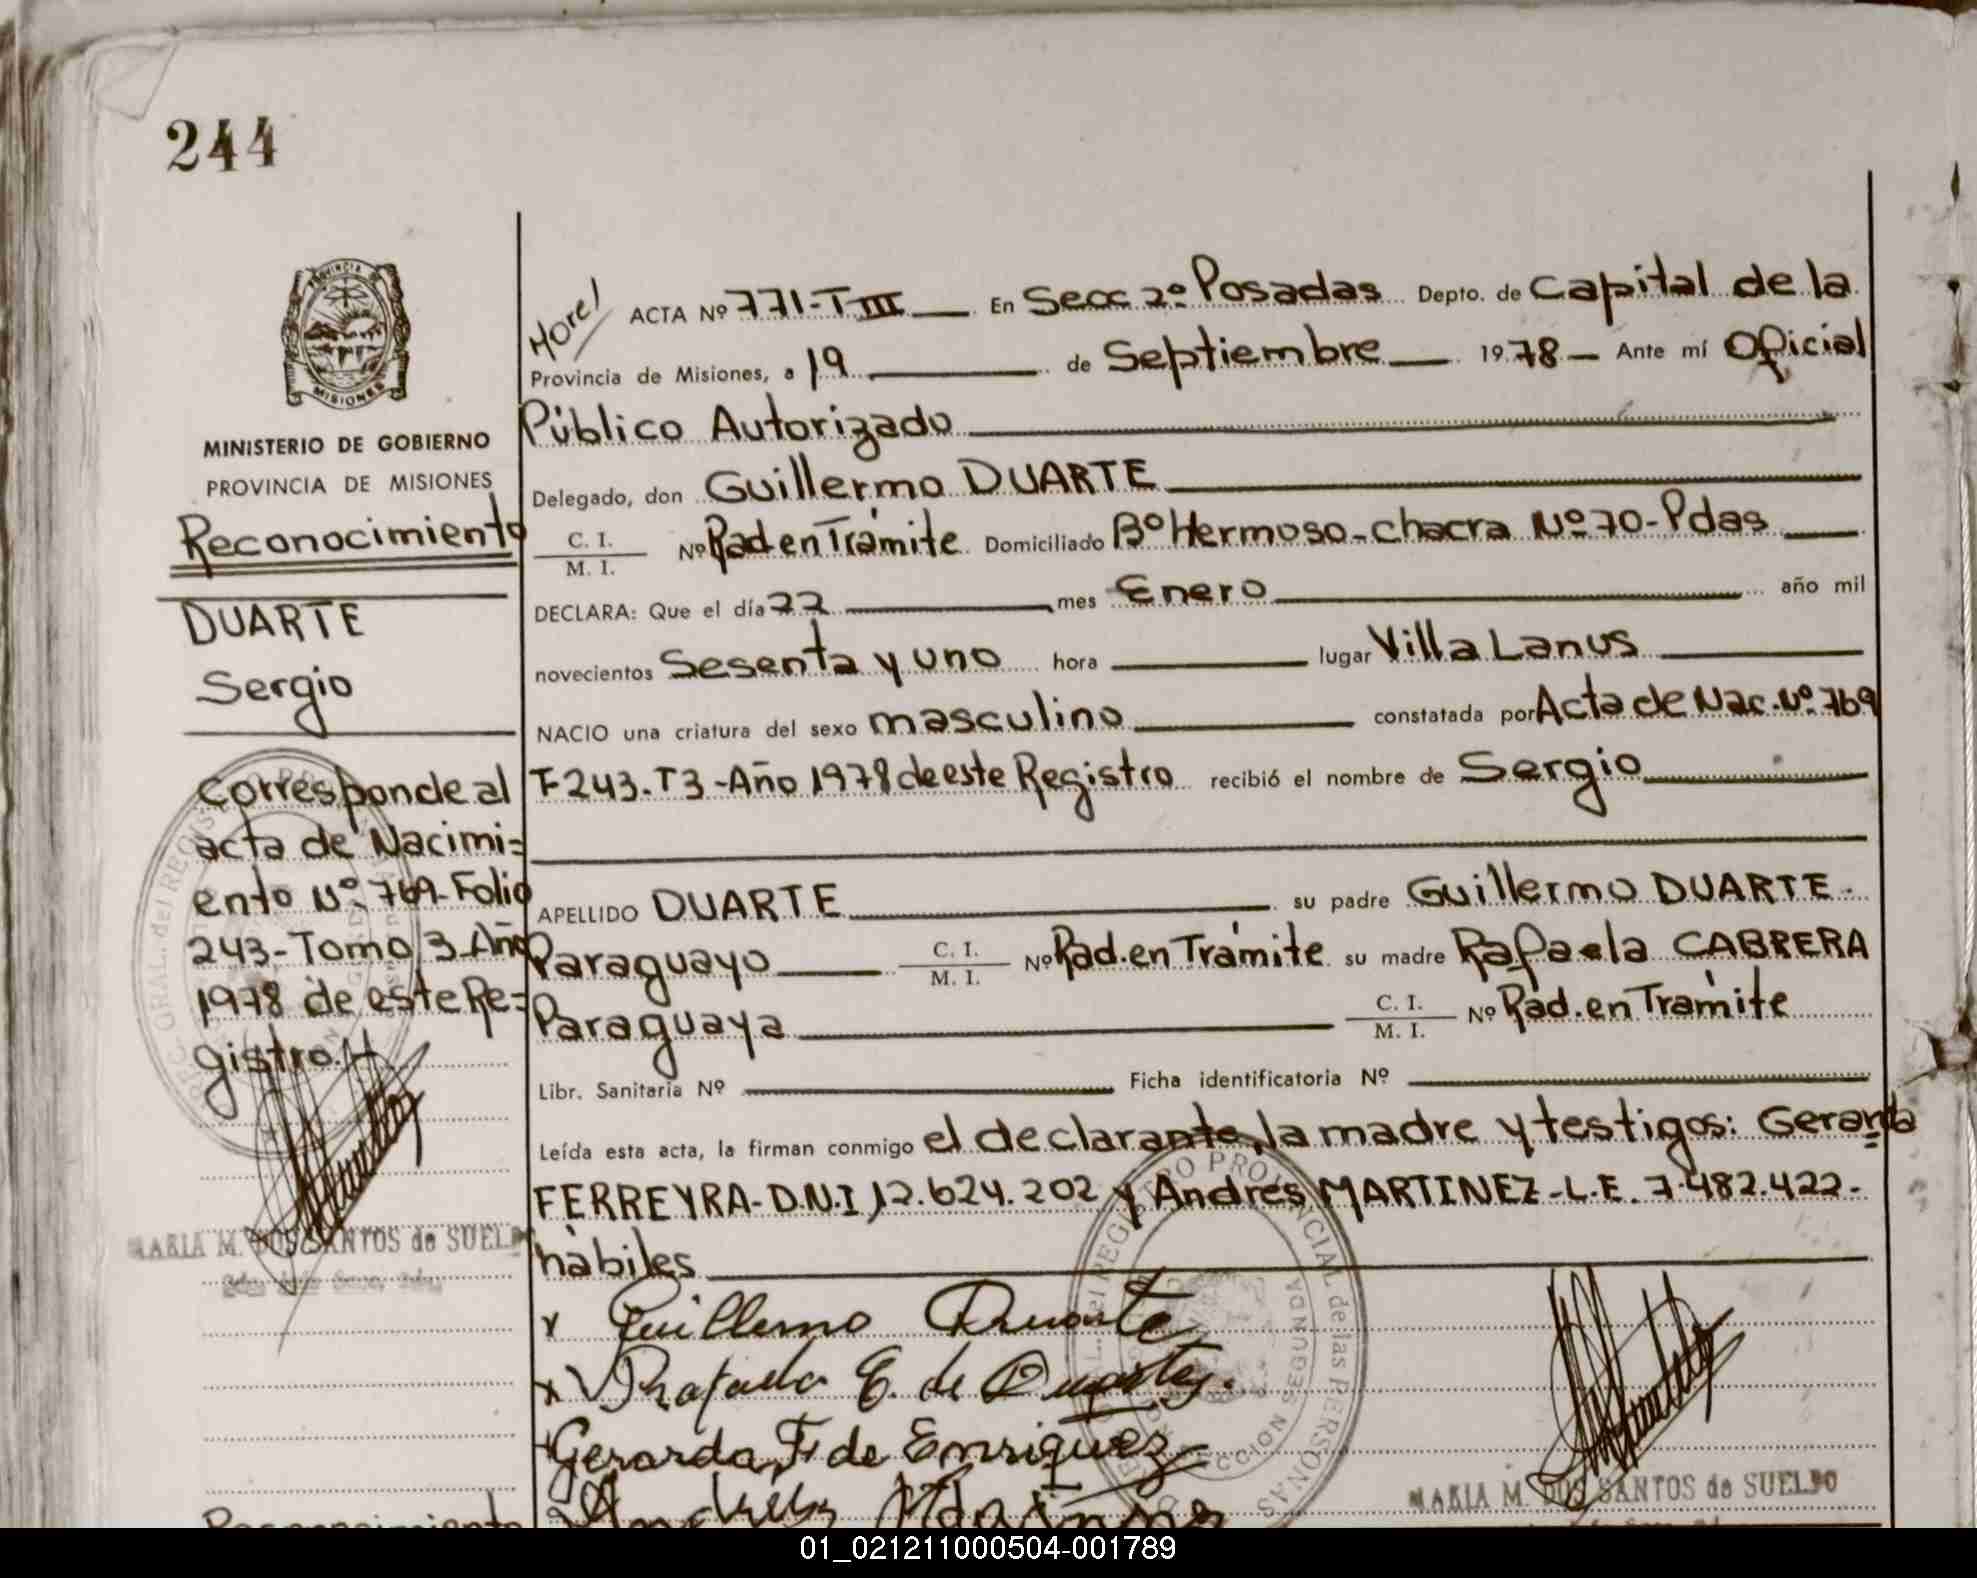 244
PROVINCIA DE
MISIONES
MINISTERIO DE GOBIERNO
PROVINCIA DE MISIONES
Reconocimiento
DUARTE
Sergio
Corresponde al
acta de Nacimi=
ento Nº 769-Folio
243-Tomo 3-Año
1978 de este Re=
gistro.
MARIA M. DOS SANTOS de SUELDO
ACTA Nº 771-T III En Secc 2º Posadas Depto. de Capital de la
Provincia de Misiones, a 19 de Septiembre 1978 Ante mí Oficial
Público Autorizado
Delegado, don Guillermo DUARTE
C. I.
M. I. Nº Rad en Trámite Domiciliado Bº Hermoso-chacra Nº 70-Pdas
DECLARA: Que el día 22 mes Enero año mil
novecientos Sesenta y uno hora lugar Villa Lanus
NACIO una criatura del sexo masculino constatada por Acta de Nac. Nº 769
F-243-T3-Año 1978 de este Registro recibió el nombre de Sergio
APELLIDO DUARTE su padre Guillermo DUARTE
Paraguayo C. I.
M. I. Nº Rad.en Trámite su madre Rafaela CABRERA
Paraguaya C. I.
M. I. Nº Rad.en Tramite
Libr. Sanitaria Nº Ficha identificatoria Nº
Leída esta acta, la firman conmigo el declarante, la madre y testigos: Gerarda
FERREYRA-D.N.I 12.624.202 y Andrés MARTINEZ-L.E. 7.482.422-
hábiles
x Guillermo Duarte
x Rafaela C. de Duarte
Gerarda F de Enriquez
MARIA M. DOS SANTOS de SUELDO
Reconocimiento
01_021211000504-001789